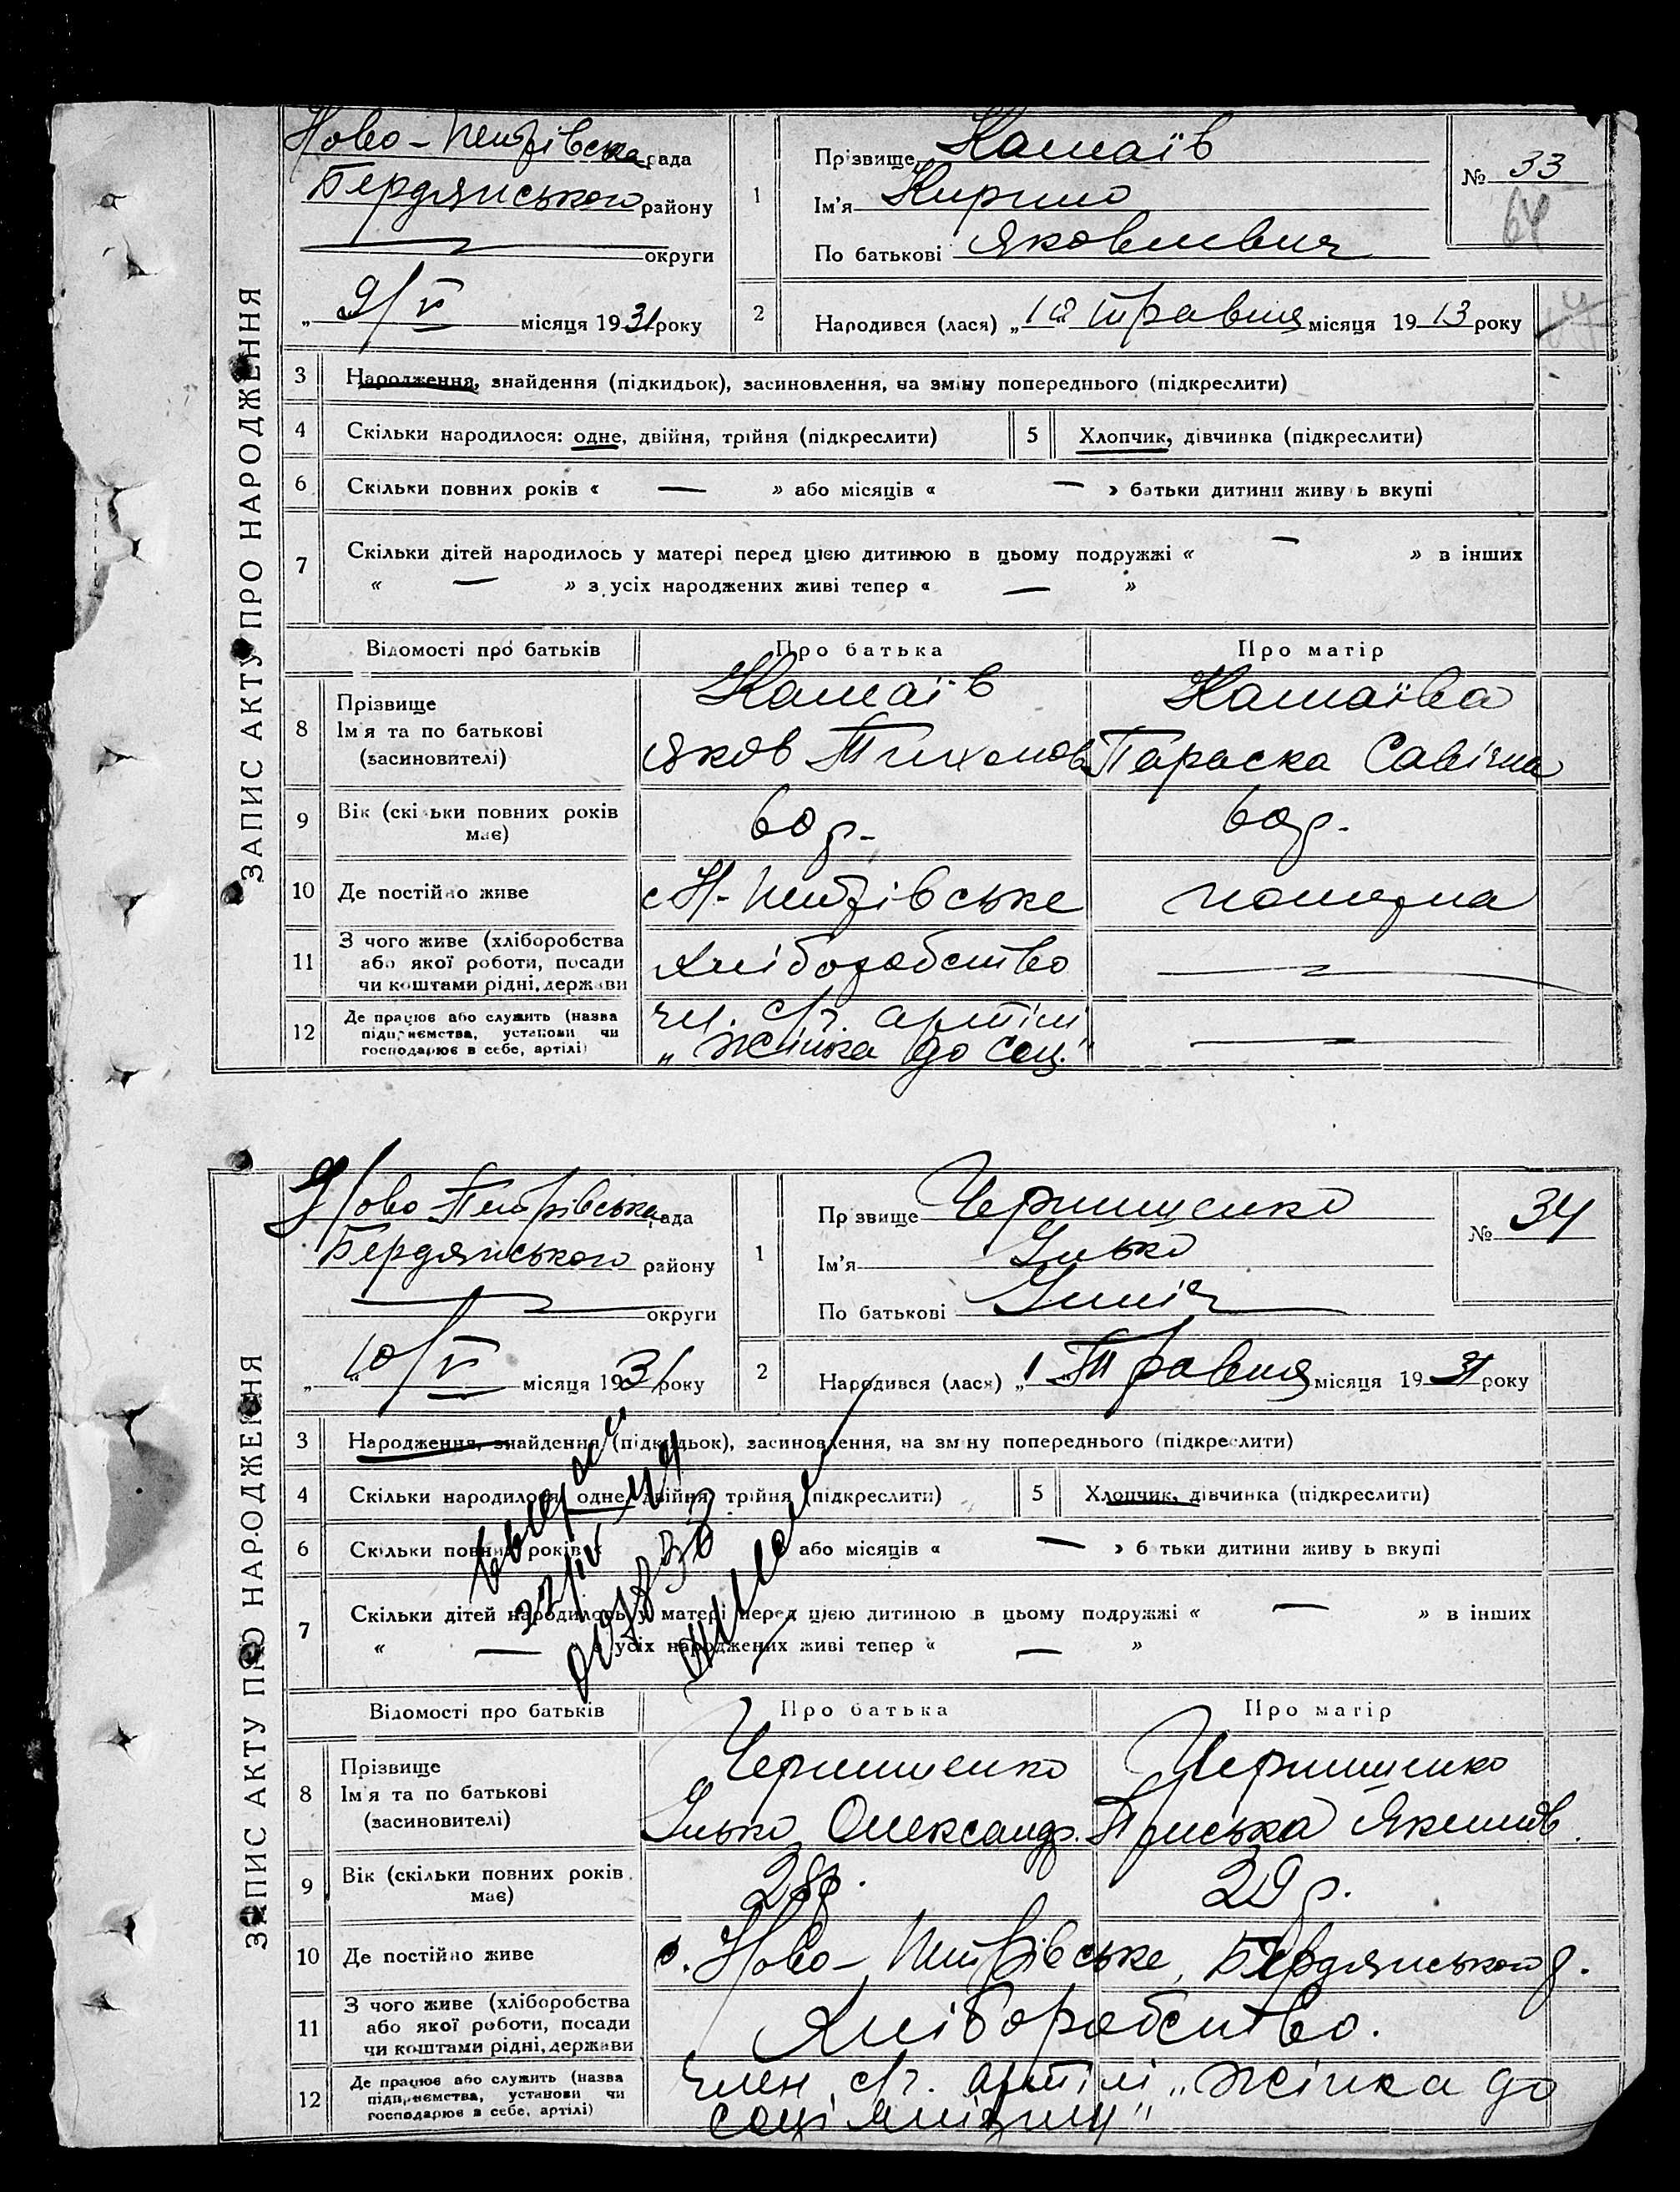 ЗАПИС АКТУ ПРО НАРОДЖЕННЯ
Ново-Петрівська рада
Бердянського району
округи
„ 9/V місяця 1931 року
1
Прізвище
Ім'я Кирило
По батькові Яковлевич
№ 33
64
2
Народився (лася) „1" травня місяця 1913 року
3 Народження, знайдення (підкидьок), засиновлення, на зміну попереднього (підкреслити)
4 Скільки народилося: одне, двійня, трійня (підкреслити)
5 Хлопчик, дівчинка (підкреслити)
6 Скільки повних років « — » або місяців « — » батьки дитини живуть вкупі
7 Скільки дітей народилось у матері перед цією дитиною в цьому подружжі « — » в інших
« — » з усіх народжених живі тепер « — »
Відомості про батьків Про батька Про матір
8 Прізвище
Ім'я та по батькові
(засновителі)
Яков Тихонов Параска Савічна
9 Вік (скільки повних років має)
60 р. 60 р.
10 Де постійно живе
с Н-Петрівське померла
11 З чого живе (хліборобства
або якої роботи, посади
чи коштами рідні, держави
Хліборобство —
12 Де працює або служить (назва
підприємства, установи чи
господарює в себе, артілі)
чл. с/г. артілі
„Жінка до соц." —
ЗАПИС АКТУ ПРО НАРОДЖЕННЯ
Ново-Петрівська рада
Бердянського району
округи
„ 10/V місяця 1931 року
1
Прізвище Чернишенко
Ім'я Ілько
По батькові Ілліч
№ 34
2
Народився (лася) „1" Травня місяця 1931 року
3 Народження, знайдення (підкидьок), засиновлення, на зміну попереднього (підкреслити)
4 Скільки народилося: одне, двійня, трійня (підкреслити)
5 Хлопчик, дівчинка (підкреслити)
6 Скільки повних років « або місяців « — » батьки дитини живуть вкупі
7 Скільки дітей народилось у матері перед цією дитиною в цьому подружжі « — » в інших
« — » з усіх народжених живі тепер « — »
22/IV
Відомості про батьків Про батька Про матір
8 Прізвище
Ім'я та по батькові
(засиновителі)
Чернишенко Чернишенко
Ілько Олександр. Приська Якимів.
9 Вік (скільки повних років має)
28 р. 29 р.
10 Де постійно живе
с. Ново-Петрівське, Бердянського р.
11 З чого живе (хліборобства
або якої роботи, посади
чи коштами рідні, держави
Хліборобство.
12 Де працює або служить (назва
підприємства, установи чи
господарює в себе, артілі)
Член с/г. артілі „Жінка до
соціялізму"